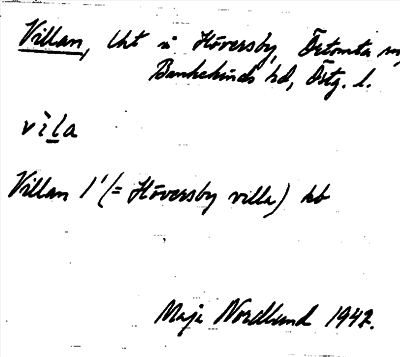 Villan, lht i Höversby, Örtomta sn,
Bankekinds hd, Östg. l.
vìḷa
Villan l' (= Höversby villa) kb
Maja Nordlund 1947.